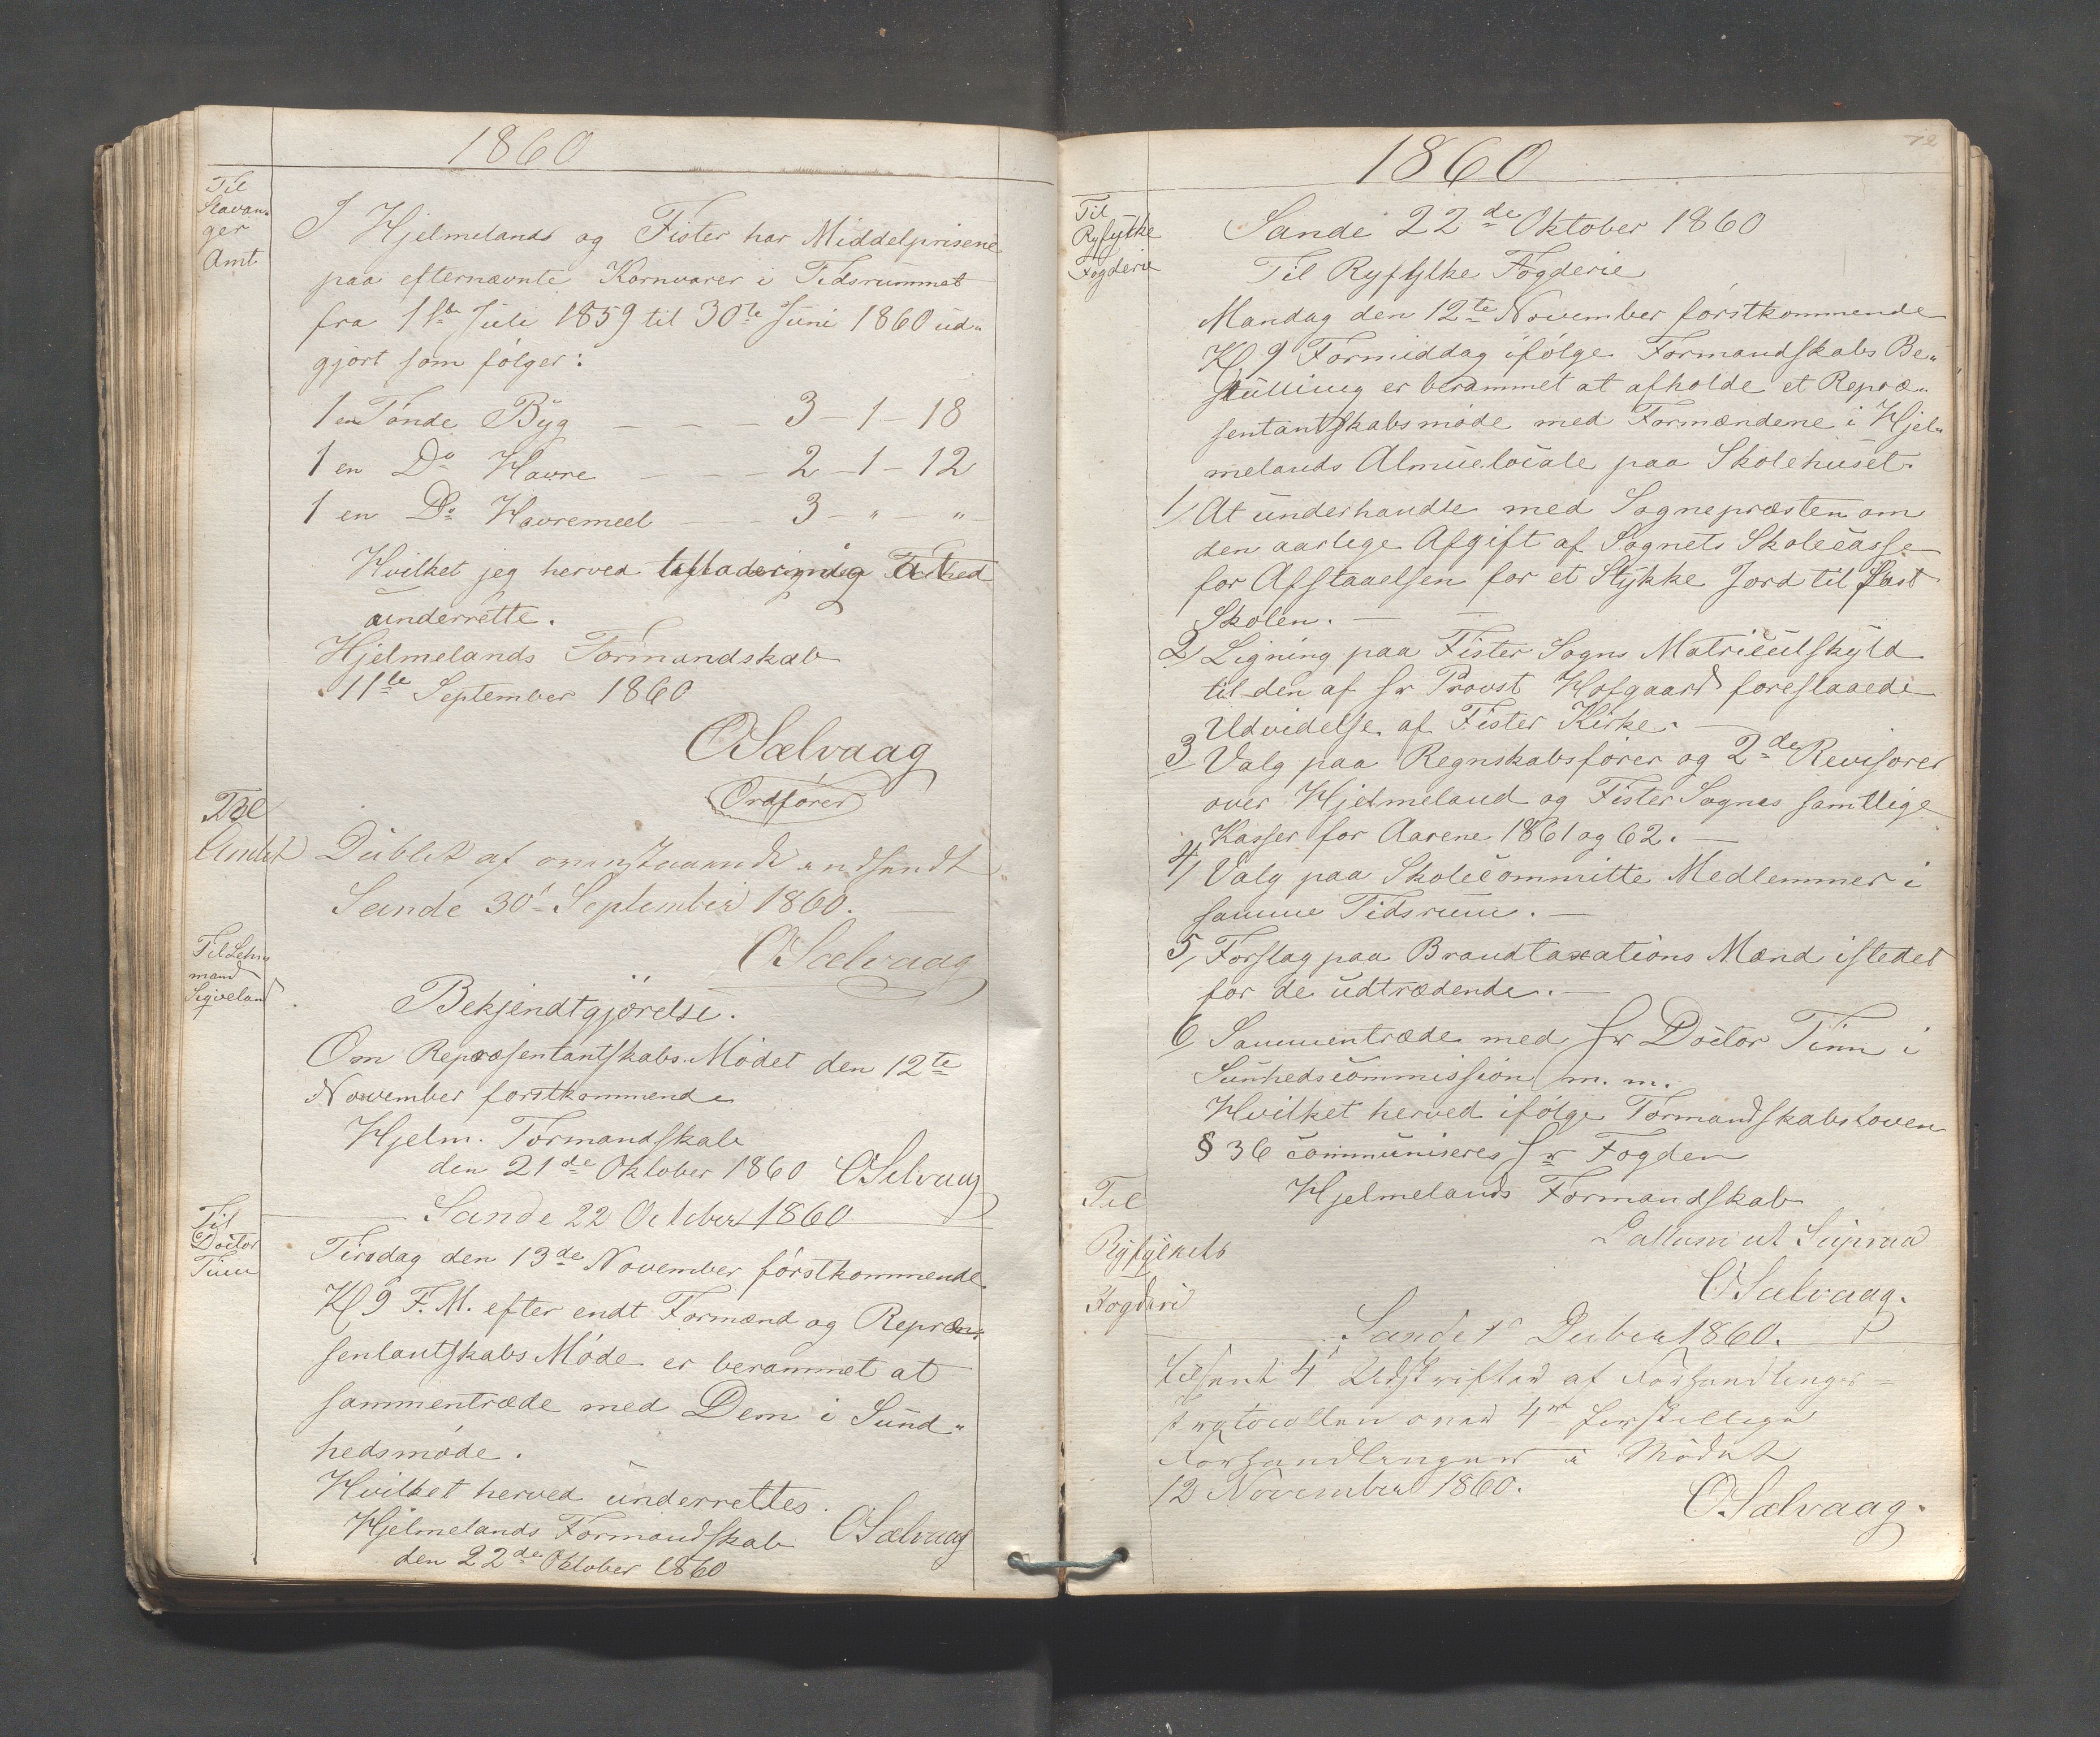 1860
Til
Stavan-
ger
Amt
I Hjelmelands og Fister har Middelprisene
paa efternævnte Kornvarer i Tidsrummet
fra 1ste Juli 1859 til 30te Juni 1860 ud-
gjort som følger:
1 en Tønde Byg — — — 3 - 1 - 18
1 en Do Havre — — — 2 - 1 - 12
1 en Do Havremeel — — 3 - " - "
Hvilket jeg herved
underrette.
Hjelmelands Formandskab
11te September 1860
OSælvaag
Ordfører
Til
Amtet
Dublet af ovenstaaende indsendt
Sande 30 September 1860. —
OSælvaag
Til Lehns
mand
Sigveland
Bekjendtgjørelse.
Om Repræsentantskabs Mødet den 12te
November førstkommende
Hjelm. Formandskab
den 21de Oktober 1860 OSelvaag
Til
Doctor
Tinn
Sande 22 October 1860
Tirsdag den 13de November førstkommende
Kl 9 F. M. efter endt Formænd og Repræ-
sentantskabs Møde er berammet at
sammentræde med Dem i Sund-
hedsmøde.
Hvilket herved underrettes.
Hjelmelands Formandskab OSælvaag
den 22de Oktober 1860
72
1860
Til
Ryfylke
Fogderie
Sande 22de Oktober 1860
Til Ryfylke Fogderie
Mandag den 12te November førstkommende
Kl 9 Formiddag ifølge Formandskabs Be-
slutning er berammet at afholde et Repræ-
sentantskabsmøde med Formændene i Hjel-
melands Almuelocale paa Skolehuset.
1/ At underhandle med Sognepræsten om
den aarlige Afgift af Sognets Skolecasse
for Afstaaelsen for et Stykke Jord til Fast
Skolen. —
2/ Ligning paa Fister Sogns Matriculskyld
til den af Hr Provst Hofgaard foreslaaede
Udvidelse af Fister Kirke. —
3/ Valg paa Regnskabsfører og 2de Revisorer
over Hjelmeland og Fister Sognes samtlige
Kasser for Aarene 1861 og 62. —
4/ Valg paa Skolecommitte Medlemmer i
samme Tidsrum. —
5/ Forslag paa Brandtaxations Mænd istedet
for de udtrædende. —
6/ Sammentræde med Hr Doctor Tinn i
Sunhedscommission m. m.
Hvilket herved ifølge Formandskabsloven
§ 36 communiseres Hr Fogden
Hjelmelands Formandskab
Datum ut Supraa
OSælvaag.
Til
Ryfylkets
Fogderi
Sande 1 Decbr 1860.
Tilsent 4 Udskrifter af Forhandlings-
protocollen over 4re forskjellige
Forhandlinger i Mødet
12 November 1860.
OSælvaag.